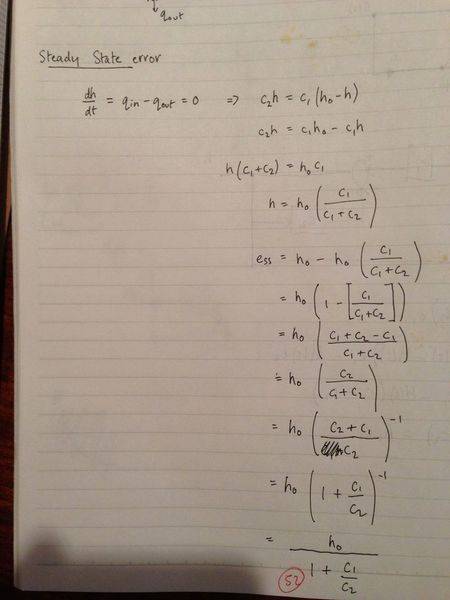 q_out
Steady State error
dh/dt = q_in - q_out = 0 => c₂h = c₁(h₀-h)
c₂h = c₁h₀ - c₁h
h(c₁+c₂) = h₀c₁
h = h₀ (c₁/(c₁+c₂))
ess = h₀ - h₀ (c₁/(c₁+c₂))
= h₀ (1 - [c₁/(c₁+c₂)])
= h₀ ((c₁+c₂-c₁)/(c₁+c₂))
= h₀ (c₂/(c₁+c₂))
= h₀ ((c₂+c₁)/c₂)⁻¹
= h₀ (1 + c₁/c₂)⁻¹
= h₀/(1 + c₁/c₂)
52